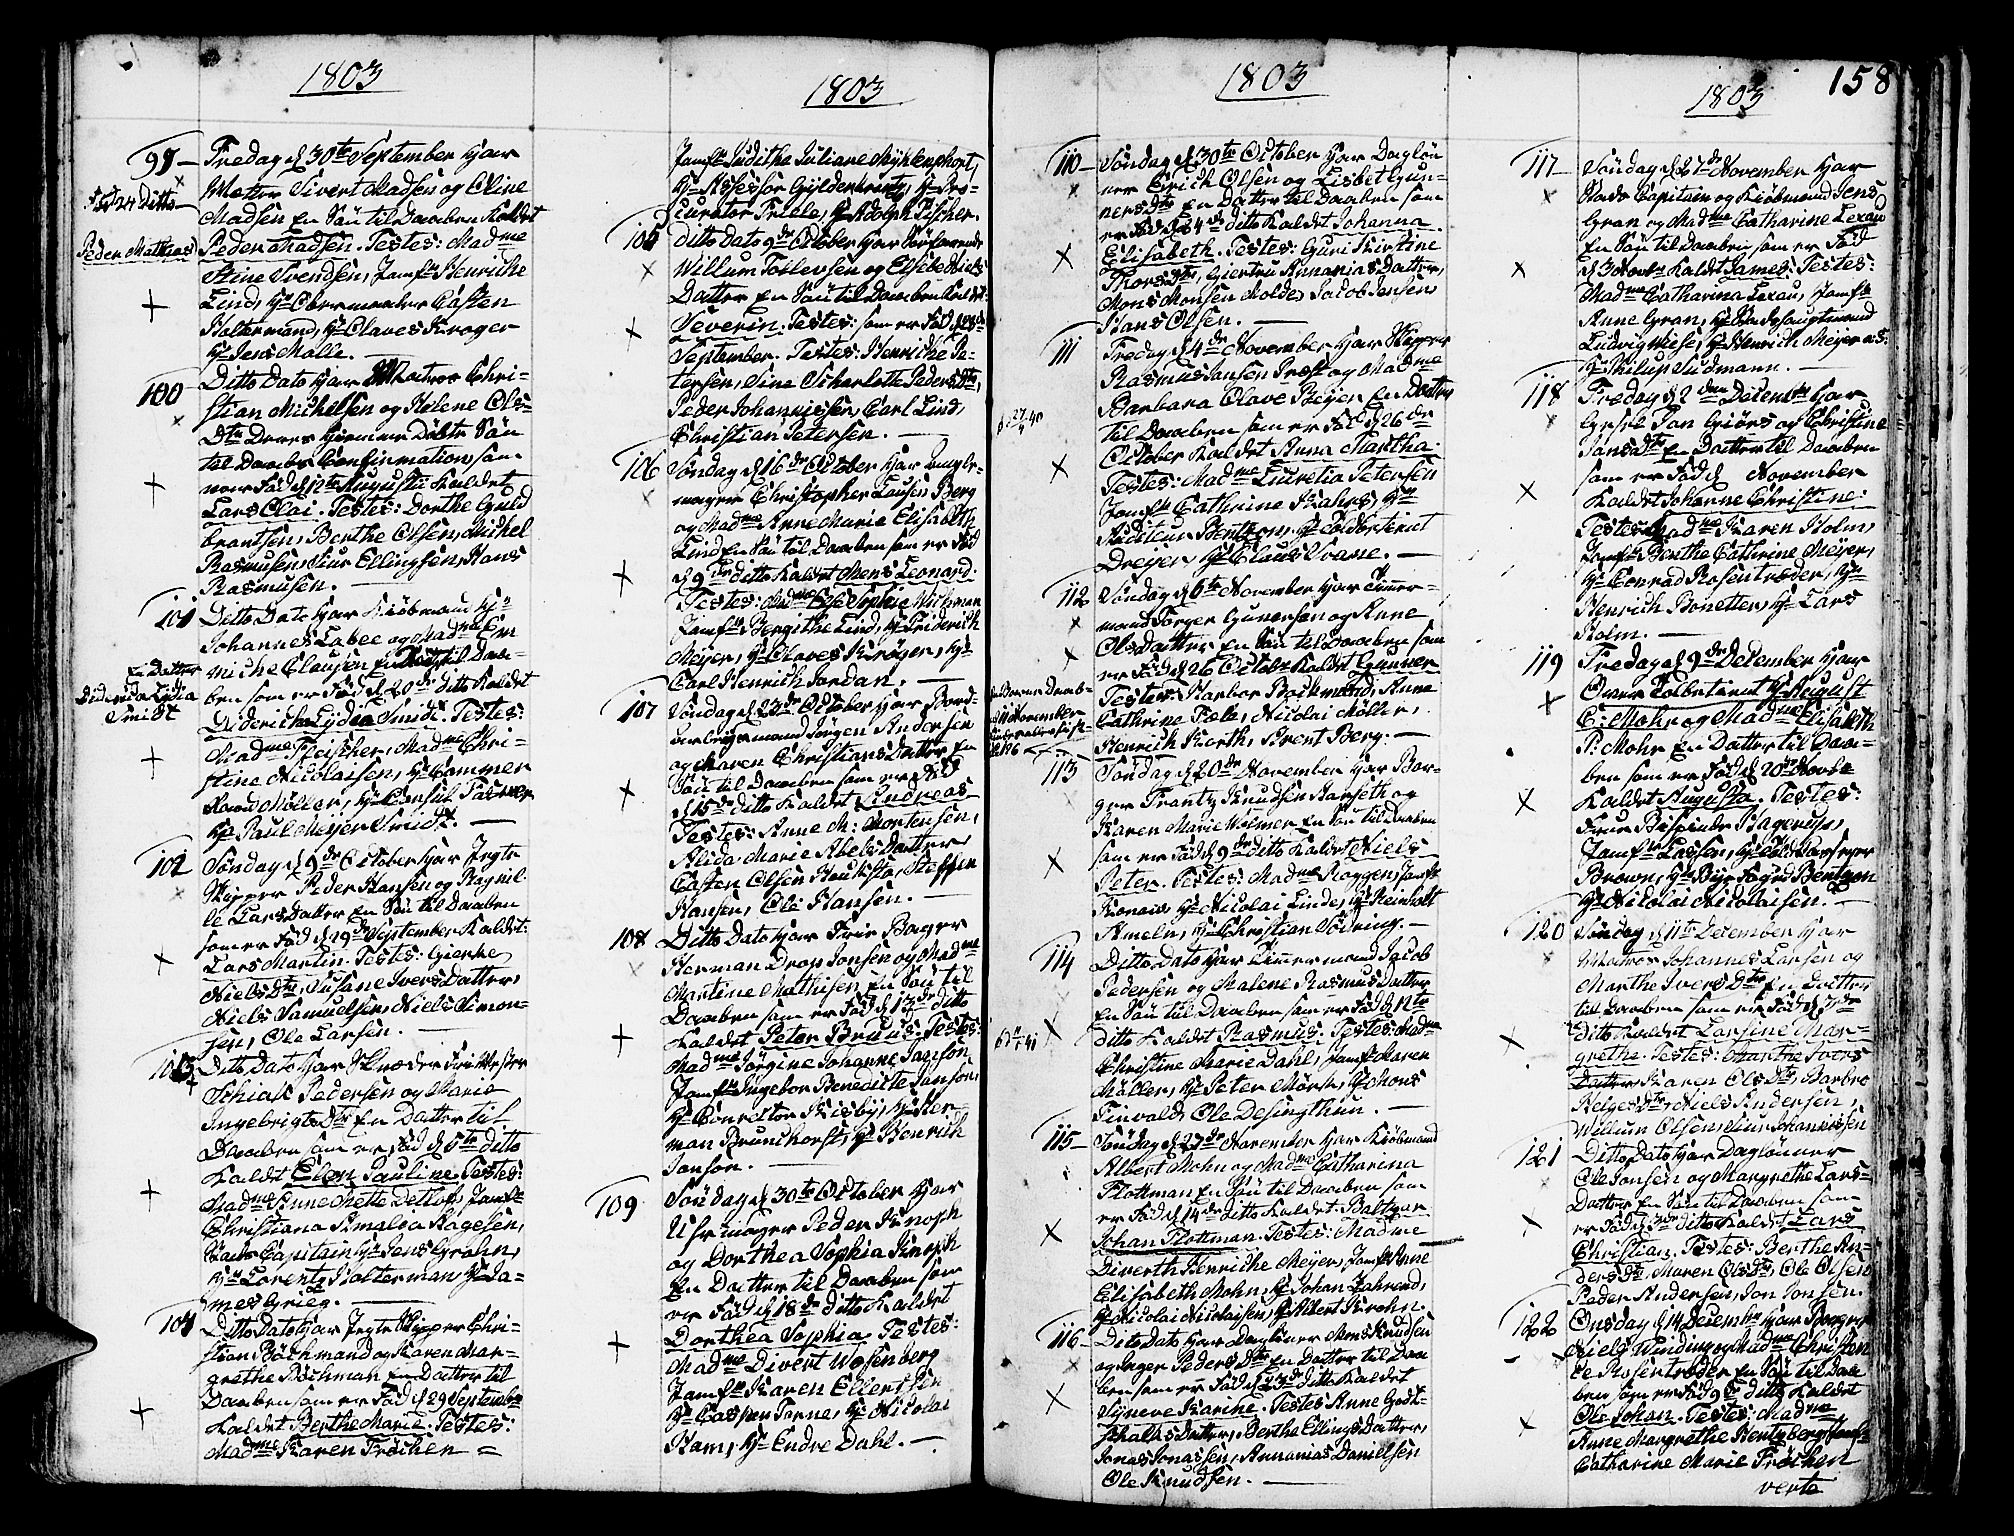 1803
99 Fredag d 30te September har
Matros Sivert Madsen og Oline
d 24 Ditto
Madsen En Søn til Daaben Kaldet
Peder Mathias
Peder Madsen. Testes: Madme
Stine Svendsen, Jomfr Henriche
Lind, Hr Casten
Holtermand, Hr Claves Krøger
Hr Jens Molle.
100 Ditto Dato har Matros Chri-
stian Michelsen og Helene Ols-
Dtr Deres hiemme Døbte Søn
til Daabs Confirmation som
var Fød d 12te August Kaldet
Lars Olai. Testes: Dorthe Guld
brantsen, Berthe Olsen, Michel
Rasmusen, Siur Ellingsen, Hans
Rasmusen.
101 Ditto Dato har Kiøbmand Hr
Johannes Labee og Madme Em
miche Clausen En til Daa-
En Datter
Diderica Lydia
Smidt
ben som er Fød d 20de ditto Kaldet
Dideriche Lydia Smidt. Testes:
Madme Fleischer, Madme Chri-
stine Nicolaisen, Hr Cammer
Raad Möller, Hr Consul
Hr Paul Meyer Smidt.
102 Søndag d 9de October har Jegte
Skipper Peder Hansen og Ragnil-
le Lars Datter En Søn til Daaben
som er Fød d 19de September Kaldet:
Lars Martin. Testes: Gierthe
Niels Dtr, Susane Ivers Datter,
Niels Samuelsen, Niels Simon-
sen, Ole Larsen.
103 Ditto Dato har Skræder
Tchias Pedersen og Marie
Ingebrigts Dtr En Datter til
Daaben som er Fød d 5te ditto
Kaldet Elen Pauline. Testes:
Madme Anne Mette Detlof, Jomfr
Christiana Amalea Hagelsen,
Capitain Hr Jens Grohn,
Hr Lorentz Holterman, Hr Ja-
mes Grieg.
104 Ditto Dato har Jegte Skipper Chri-
stian Bøchmand og Karen Mar-
grethe Bøchman En Datter til
Daaben som er Fød d 29 September
Kaldet Berthe Marie. Testes:
Madme Karen Frøchen
1803
Jomfr Juditha Juliane Mÿhlenphort,
Hr Assessor Gyldenkrantz, Hr Pro-
curator Friele, Hr Adolph Fischer.
105 Ditto Dato 9de October har Søefarende
Willum Tollevsen og Elsebe Niels
Datter En Søn til Daaben Kaldet:
Severin. Testes: som er Fød d
September. Testes: Henriche Pe-
tersen, Sine Scharlotte Peders Dtr,
Peder Johannissen, Carl Lind,
Christian Petersen.
106 Søndag d 16de October har
mager Christopher Lausen Berg
og Madme Anne Marie Elisabeth
Lind En Søn til Daaben som er Fød
d 9de ditto Kaldet Mens Leonard.
Testes: Madme Else Sophie Wichman
Jomfr Bergithe Lind, Hr Friderich
Meyer, Hr Claves Krøger, Hr
Carl Henrich Jordan.
107 Søndag d 23de October har Bord-
mand Jörgen Andersen
og Maren Christians Datter En
Søn til Daaben som er Fød
d 15de ditto Kaldet Andreas
Testes: Anne M: Mortensen,
Alida Marie Abels Datter,
Casten Olsen Steffen
Hansen, Ole Hansen.
108 Ditto Dato har Friis Bager
Herman Drop Jansen og Madme
Martine Mathisen En Søn til
Daaben som er Fød d 13de ditto
Kaldet Peter Bruus. Testes:
Madme Jörgine Johanne Janson,
Jomfr Ingebor Benedicte Janson,
Hr Conrector Kisbÿ, Hr Her-
man Brunchorst, Hr Henrich
Janson.
109 Søndag d 30te October har
Uhrmager Peder Knoph
og Dorthea Sophia Knoph
En Datter til Daaben som
er Fød d 18de ditto Kaldet
Dorthea Sophia. Testes:
Madme Divert Wesenberg
Jomfr Karen Ellertsen
Hr Casper Terne, Hr Nicolai
Ham, Hr Endre Dahl.
1803
110 Søndag d 30te October har Dagløn
ner Erich Olsen og Lisbet Gun-
ners Dtr En Datter til Daaben som
er Fød d 24de ditto Kaldet Johanna
Elisabeth. Testes: Guri Kirtine
Thors Dtr, Giertru Annanias Datter,
Mons Monsen Molde, Jacob Jensen,
Hans Olsen.
111 Fredag d 4de November har Skipper
Rasmus Jansen Præst og Madme
Barbara Olave Beÿer En Datter
27/4 40
til Daaben som er Fød d 26de
October Kaldet Anna Martha:
Testes: Madme Lucretia Petersen
Jomfr Cathrine Kahrs, Hr
Auditeur Bentzon, Hr Toldbetient
Dreÿer, Hr Claus Svane.
112 Søndag d 6te November har Timmer-
mand Torger Gunnersen og Anne
Ols Datter En Søn til Daaben som
er Fød d 26 October Kaldet Gunner
Testes: Karbor Bockmand, Anne
Cathrine Fæle, Nicolai Möller,
Henrich Korth, Brent Berg.
113 Søndag d 20de November har Bor-
ger Frantz Knudsen Aarseth og
Karen Marie Wolmer En Søn til Daaben
som er Fød d 9de ditto Kaldet Niels
Peter. Testes: Madme Roggen, Jomfr
Konow, Hr Nicolai Linde, Hr Reinholt
Ameln, Hr Christian Södring.
114 Ditto Dato har Timmermand Jacob
Pedersen og Malene Rasmus Datter
En Søn til Daaben som er Fød d 12te
ditto Kaldet Rasmus. Testes: Madme
Christine Marie Dahl, Jomfr Karen
Möller, Hr Peter Mörk, Hr Mons
Finvald, Ole Desingthun.
115 Søndag d 27de November har Kiøbmand
Albert Mohn og Madme Catharina
Flottman En Søn til Daaben som
er Fød d 14de ditto Kaldet: Baltzar
Johan Flottman. Testes: Madme
Diverth Henriche Meÿer, Jomfr Anne
Elisabeth Mohn, Hr Johan Jahrend,
Hr Nicolai Nicolaisen, Hr Albert Krohn.
116 Ditto Dato har Dagløner Mons Knudsen
og Inger Peders Dtr En Datter til Daa
ben som er Fød d 23de ditto Kaldet
Synneve Karine. Testes Anne Godt-
schalks Datter, Berthe Ellings Datter,
Jonas Jonassen, Annanias Danielsen
Ole Knudsen.
1803
158
117 Søndag d 27de November har
Stads Capitain og Kiöbmand Jens
Gran og Madme Catharine Lexau
En Søn til Daaben som er Fød
d 3 Novbr Kaldet James: Testes:
Madme Catharina Lexau, Jomfr
Anne Gran,
Ludvig Wiese, Hr Henrich Meÿer a:S:
Hr Philip Sudmann.
118 Fredag d 2den Decembr har
Jon Giörs og Christine
Jans Dtr En Datter til Daaben
som er Fød d November
Kaldet Johanne Christine:
Testes: Madme Karen Holm,
Jomfr Berthe Cathrine Meÿer,
Hr Conrad Rosentræder, Hr
Henrich Bonetter, Hr Lars
Holm.
119 Fredag d 9de December har
Over Tolbetient Hr August
C: Mohr og Madme Elisabeth
P: Mohr En Datter til Daa-
ben som er Fød d 20de Novbr
Kaldet Augusta. Testes:
Frue Bispinde Bagerus,
Jomfr Lassen,
Brown, Hr Bye Foged Bentzon
Hr Nicolai Nicolaisen.
120 Søndag d 11te December har
Matros Johannes Larsen og
Marthe Ivers Dtr En Datter
til Daaben som er Fød d 3de
Ditto Kaldet Larsine Mar-
grethe. Testes: Marthe Ivers
Datter, Karen Ols Dtr, Barbro
Helges Dtr, Niels Andersen,
Willum Olsen, Siur Johannissen
121 Ditto Dato har Daglönner
Ole Jonsen og Margrethe Lars-
Datter En Søn til Daaben som
er Fød d 3de ditto Kaldet Lars
Christian. Testes: Berthe An-
ders Dtr, Maren Ols Dtr, Ole Olsen
Peder Andersen, Jon Jonsen.
122 Onsdag d 14 Decembr har Borger
Niels Winding og Madme Christen
ce Rosentræder En Søn til Daa
ben som er Fød 9de ditto Kaldet
Ole Johan. Testes: Madme
Anne Margrethe Hentzberg, Jomfr
Catharine Marie Frøchen
verte